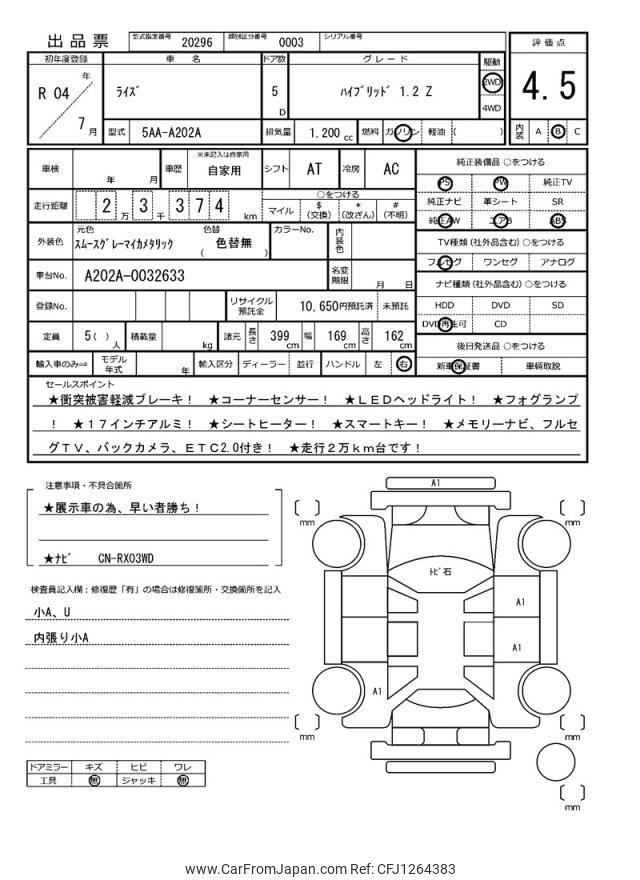 出品票 型式指定番号 20296 類別区分番号 0003 シリアル番号
評価点
4.5
内装 A B C
初年度登録 車名 ドア数 グレード 駆動
R 04 年 7 月 ﾗｲｽﾞ 5 D ﾊｲﾌﾞﾘｯﾄﾞ 1.2 Z 2WD 4WD
型式 5AA-A202A 排気量 1.200 cc 燃料 ガソリン 軽油 ( )
車検 年 月 車歴 ※未記入は自家用 自家用 シフト AT 冷房 AC
走行距離 2 万 3 千 3 7 4 km ○をつける
マイル $ (交換) * (改ざん) # (不明)
外装色 元色 ｽﾑｰｽｸﾞﾚｰﾏｲｶﾒﾀﾘｯｸ 色替 ( 色替無 ) カラーNo. 内装色
車台No. A202A-0032633 名変期限 月 日
登録No. リサイクル預託金 10,650円預託済 未預託
定員 5( )人 積載量 kg 諸元 長さ 399 cm 幅 169 cm 高さ 162 cm
輸入車のみ⇒ モデル年式 年 輸入区分 ディーラー 並行 ハンドル 左 右
純正装備品 ○をつける
PS PW 純正TV
純正ナビ 革シート SR
純正AW エアB ABS
TV種類 (社外品含む) ○をつける
フルセグ ワンセグ アナログ
ナビ種類 (社外品含む) ○をつける
HDD DVD SD
DVD再生可 CD
後日発送品 ○をつける
新車保証書 車輌取説
セールスポイント
★衝突被害軽減ブレーキ！ ★コーナーセンサー！ ★ＬＥＤヘッドライト！ ★フォグランプ
！ ★１７インチアルミ！ ★シートヒーター！ ★スマートキー！ ★メモリーナビ、フルセ
グＴＶ、バックカメラ、ＥＴＣ2.0付き！ ★走行２万ｋｍ台です！
注意事項・不具合箇所
★展示車の為、早い者勝ち！
★ﾅﾋﾞ CN-RX03WD
検査員記入欄：修復歴「有」の場合は修復箇所・交換箇所を記入
小A、U
内張り小A
ドアミラー キズ ヒビ ワレ
工具 無 ジャッキ 無
A1
mm
mm
ﾄﾋﾞ石
A1
A1
A1
mm
mm
mm
www.CarFromJapan.com Ref: CFJ1264383